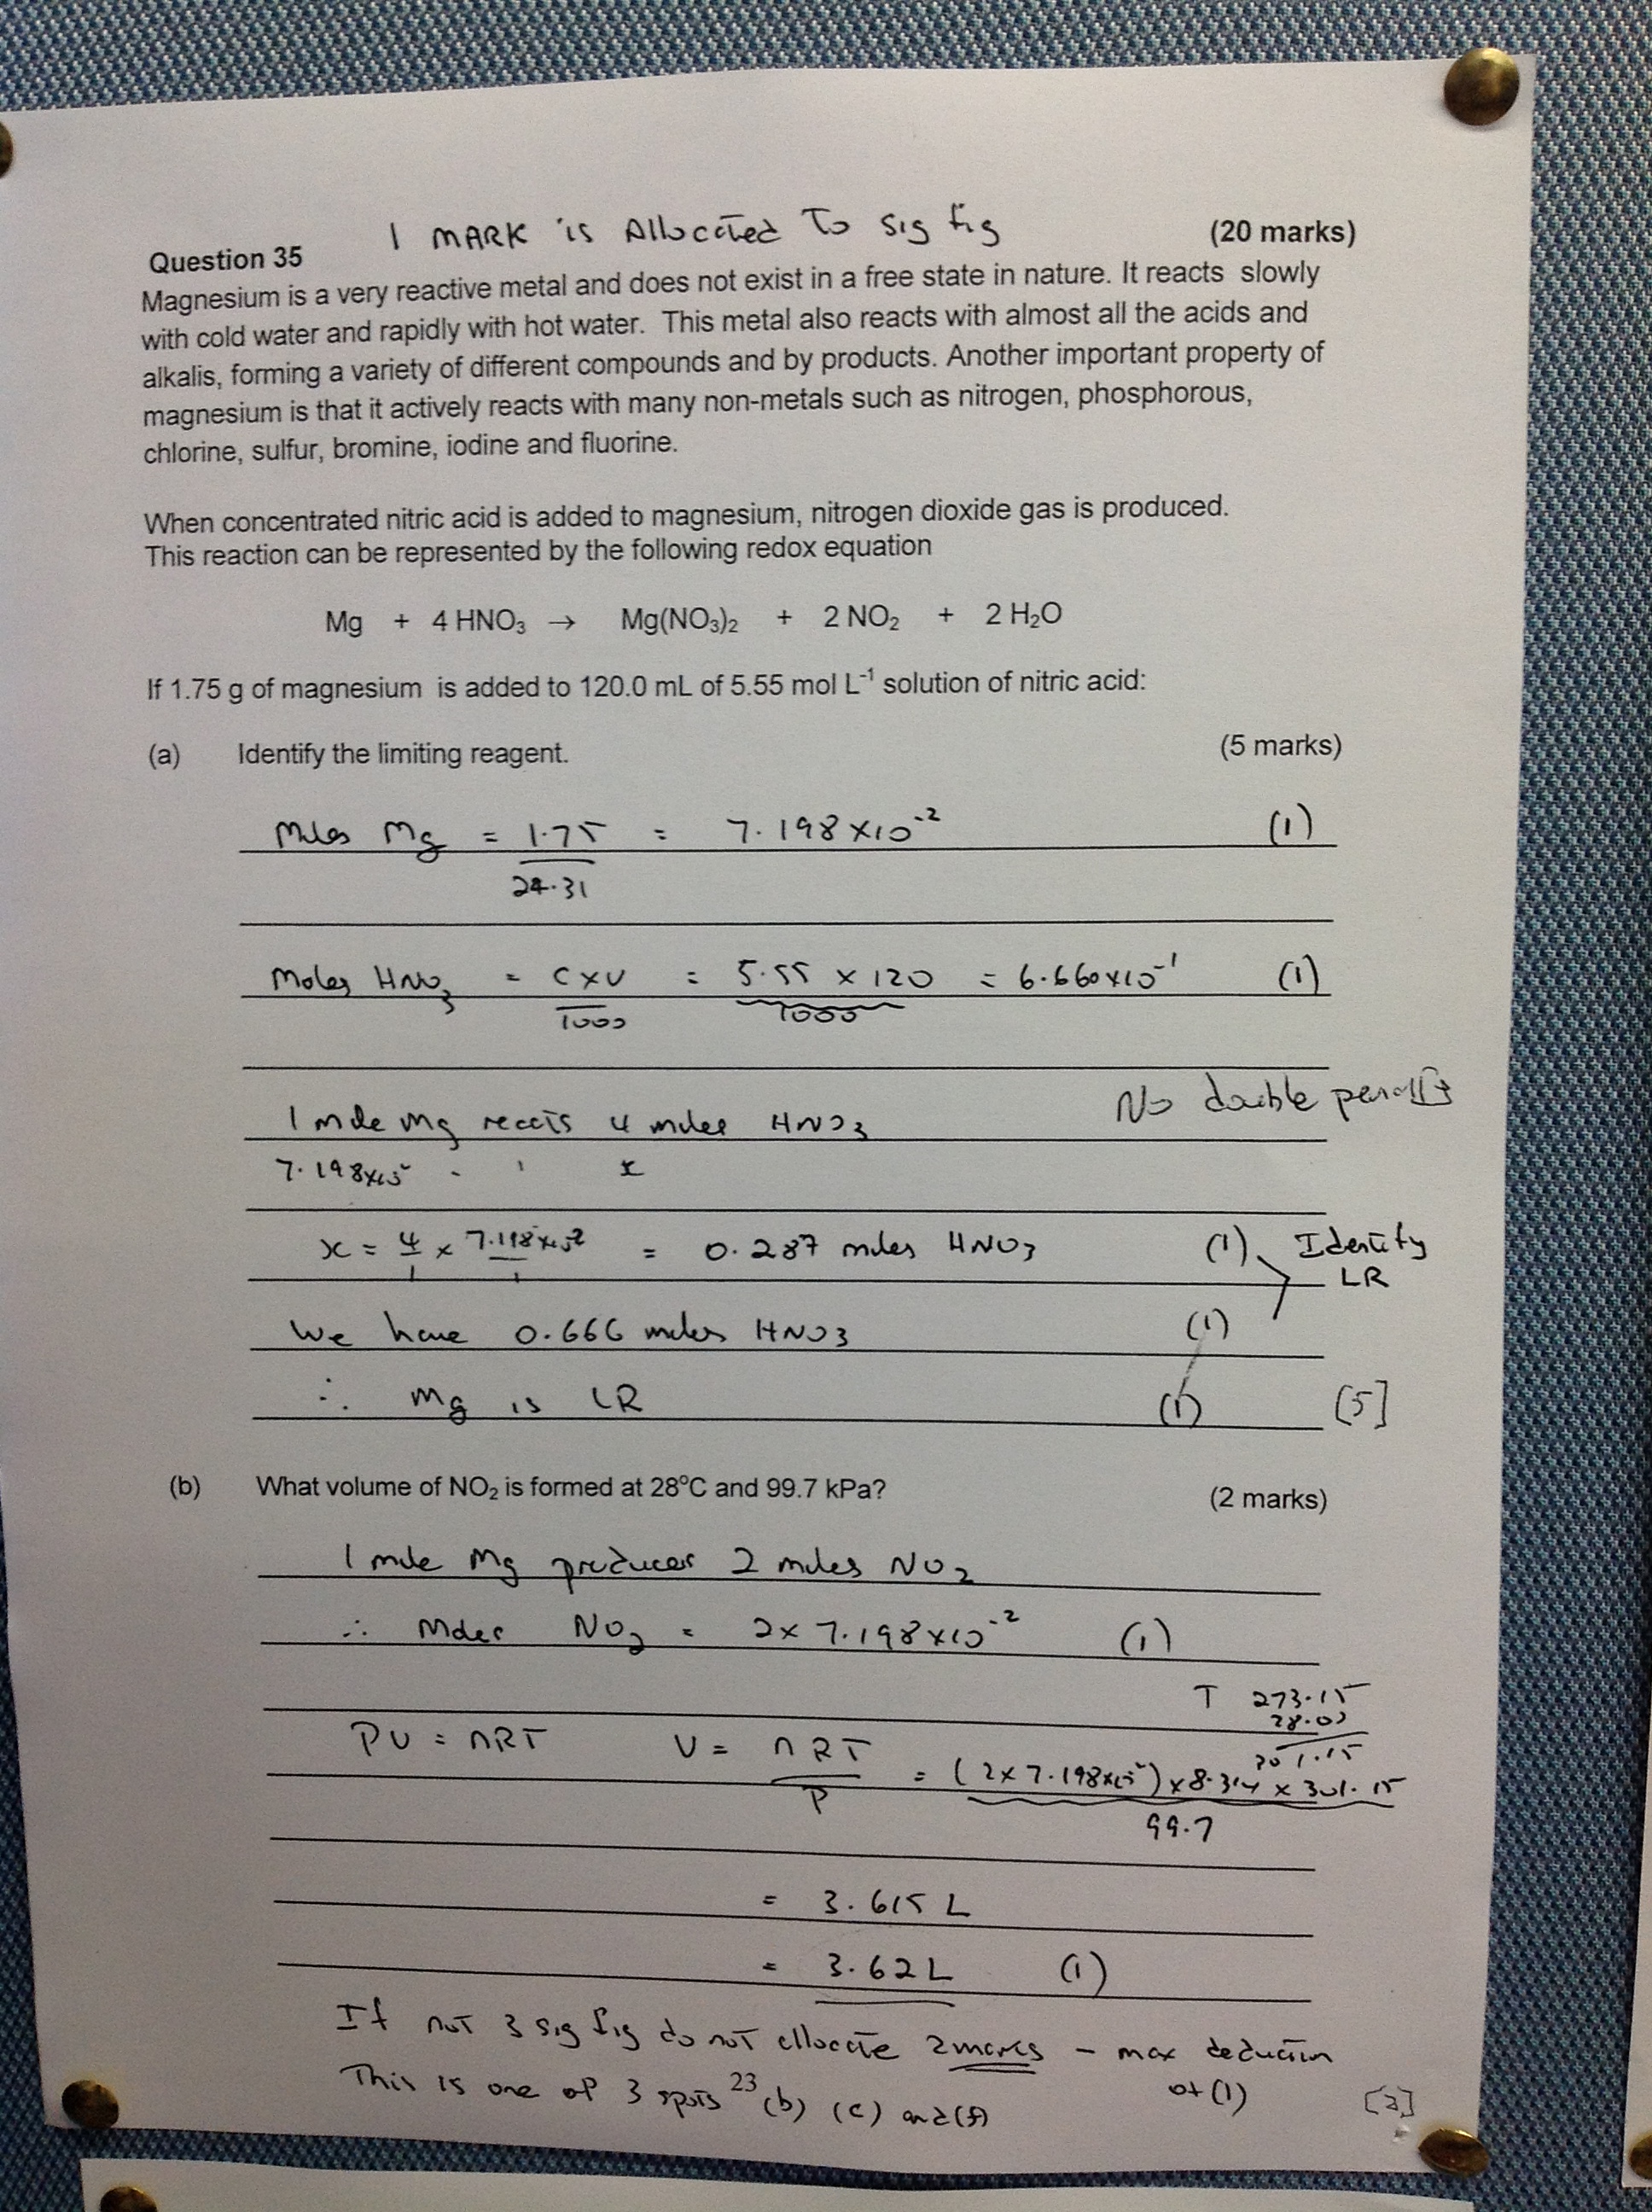 1 MARK is Allocated To sig fig
Question 35 (20 marks)
Magnesium is a very reactive metal and does not exist in a free state in nature. It reacts slowly
with cold water and rapidly with hot water. This metal also reacts with almost all the acids and
alkalis, forming a variety of different compounds and by products. Another important property of
magnesium is that it actively reacts with many non-metals such as nitrogen, phosphorous,
chlorine, sulfur, bromine, iodine and fluorine.
When concentrated nitric acid is added to magnesium, nitrogen dioxide gas is produced.
This reaction can be represented by the following redox equation
Mg + 4 HNO₃ → Mg(NO₃)₂ + 2 NO₂ + 2 H₂O
If 1.75 g of magnesium is added to 120.0 mL of 5.55 mol L⁻¹ solution of nitric acid:
(a) Identify the limiting reagent. (5 marks)
Moles Mg = 1.75 = 7.198 x 10⁻² (1)
24.31
Moles HNO₃ = C x V = 5.55 x 120 = 6.660 x 10⁻¹ (1)
1000 1000
No double penalty
1 mole Mg reacts 4 moles HNO₃
7.198x10⁻² x
x = 4 x 7.198x10⁻² = 0.287 moles HNO₃ (1) Identify
1 1 LR
We have 0.666 moles HNO₃ (1)
∴ Mg is LR (1) [5]
(b) What volume of NO₂ is formed at 28°C and 99.7 kPa? (2 marks)
1 mole Mg produces 2 moles NO₂
∴ Moles NO₂ = 2 x 7.198 x 10⁻² (1)
T 273.15
28.00
301.15
PV = nRT V = nRT = (2 x 7.198x10⁻²) x 8.314 x 301.15
P 99.7
= 3.615 L
= 3.62 L (1)
If not 3 sig fig do not allocate 2 marks - max deduction
of (1)
This is one of 3 spots 23 (b) (c) and (f) [2]